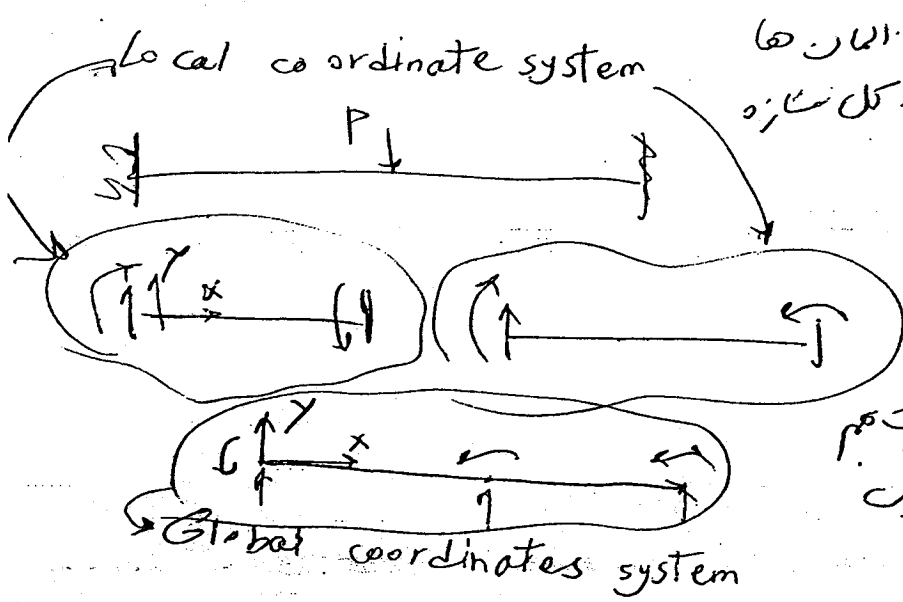 Local coordinate system
المان ها
کل سازه
P
Y
x
Y
x
Global coordinates system